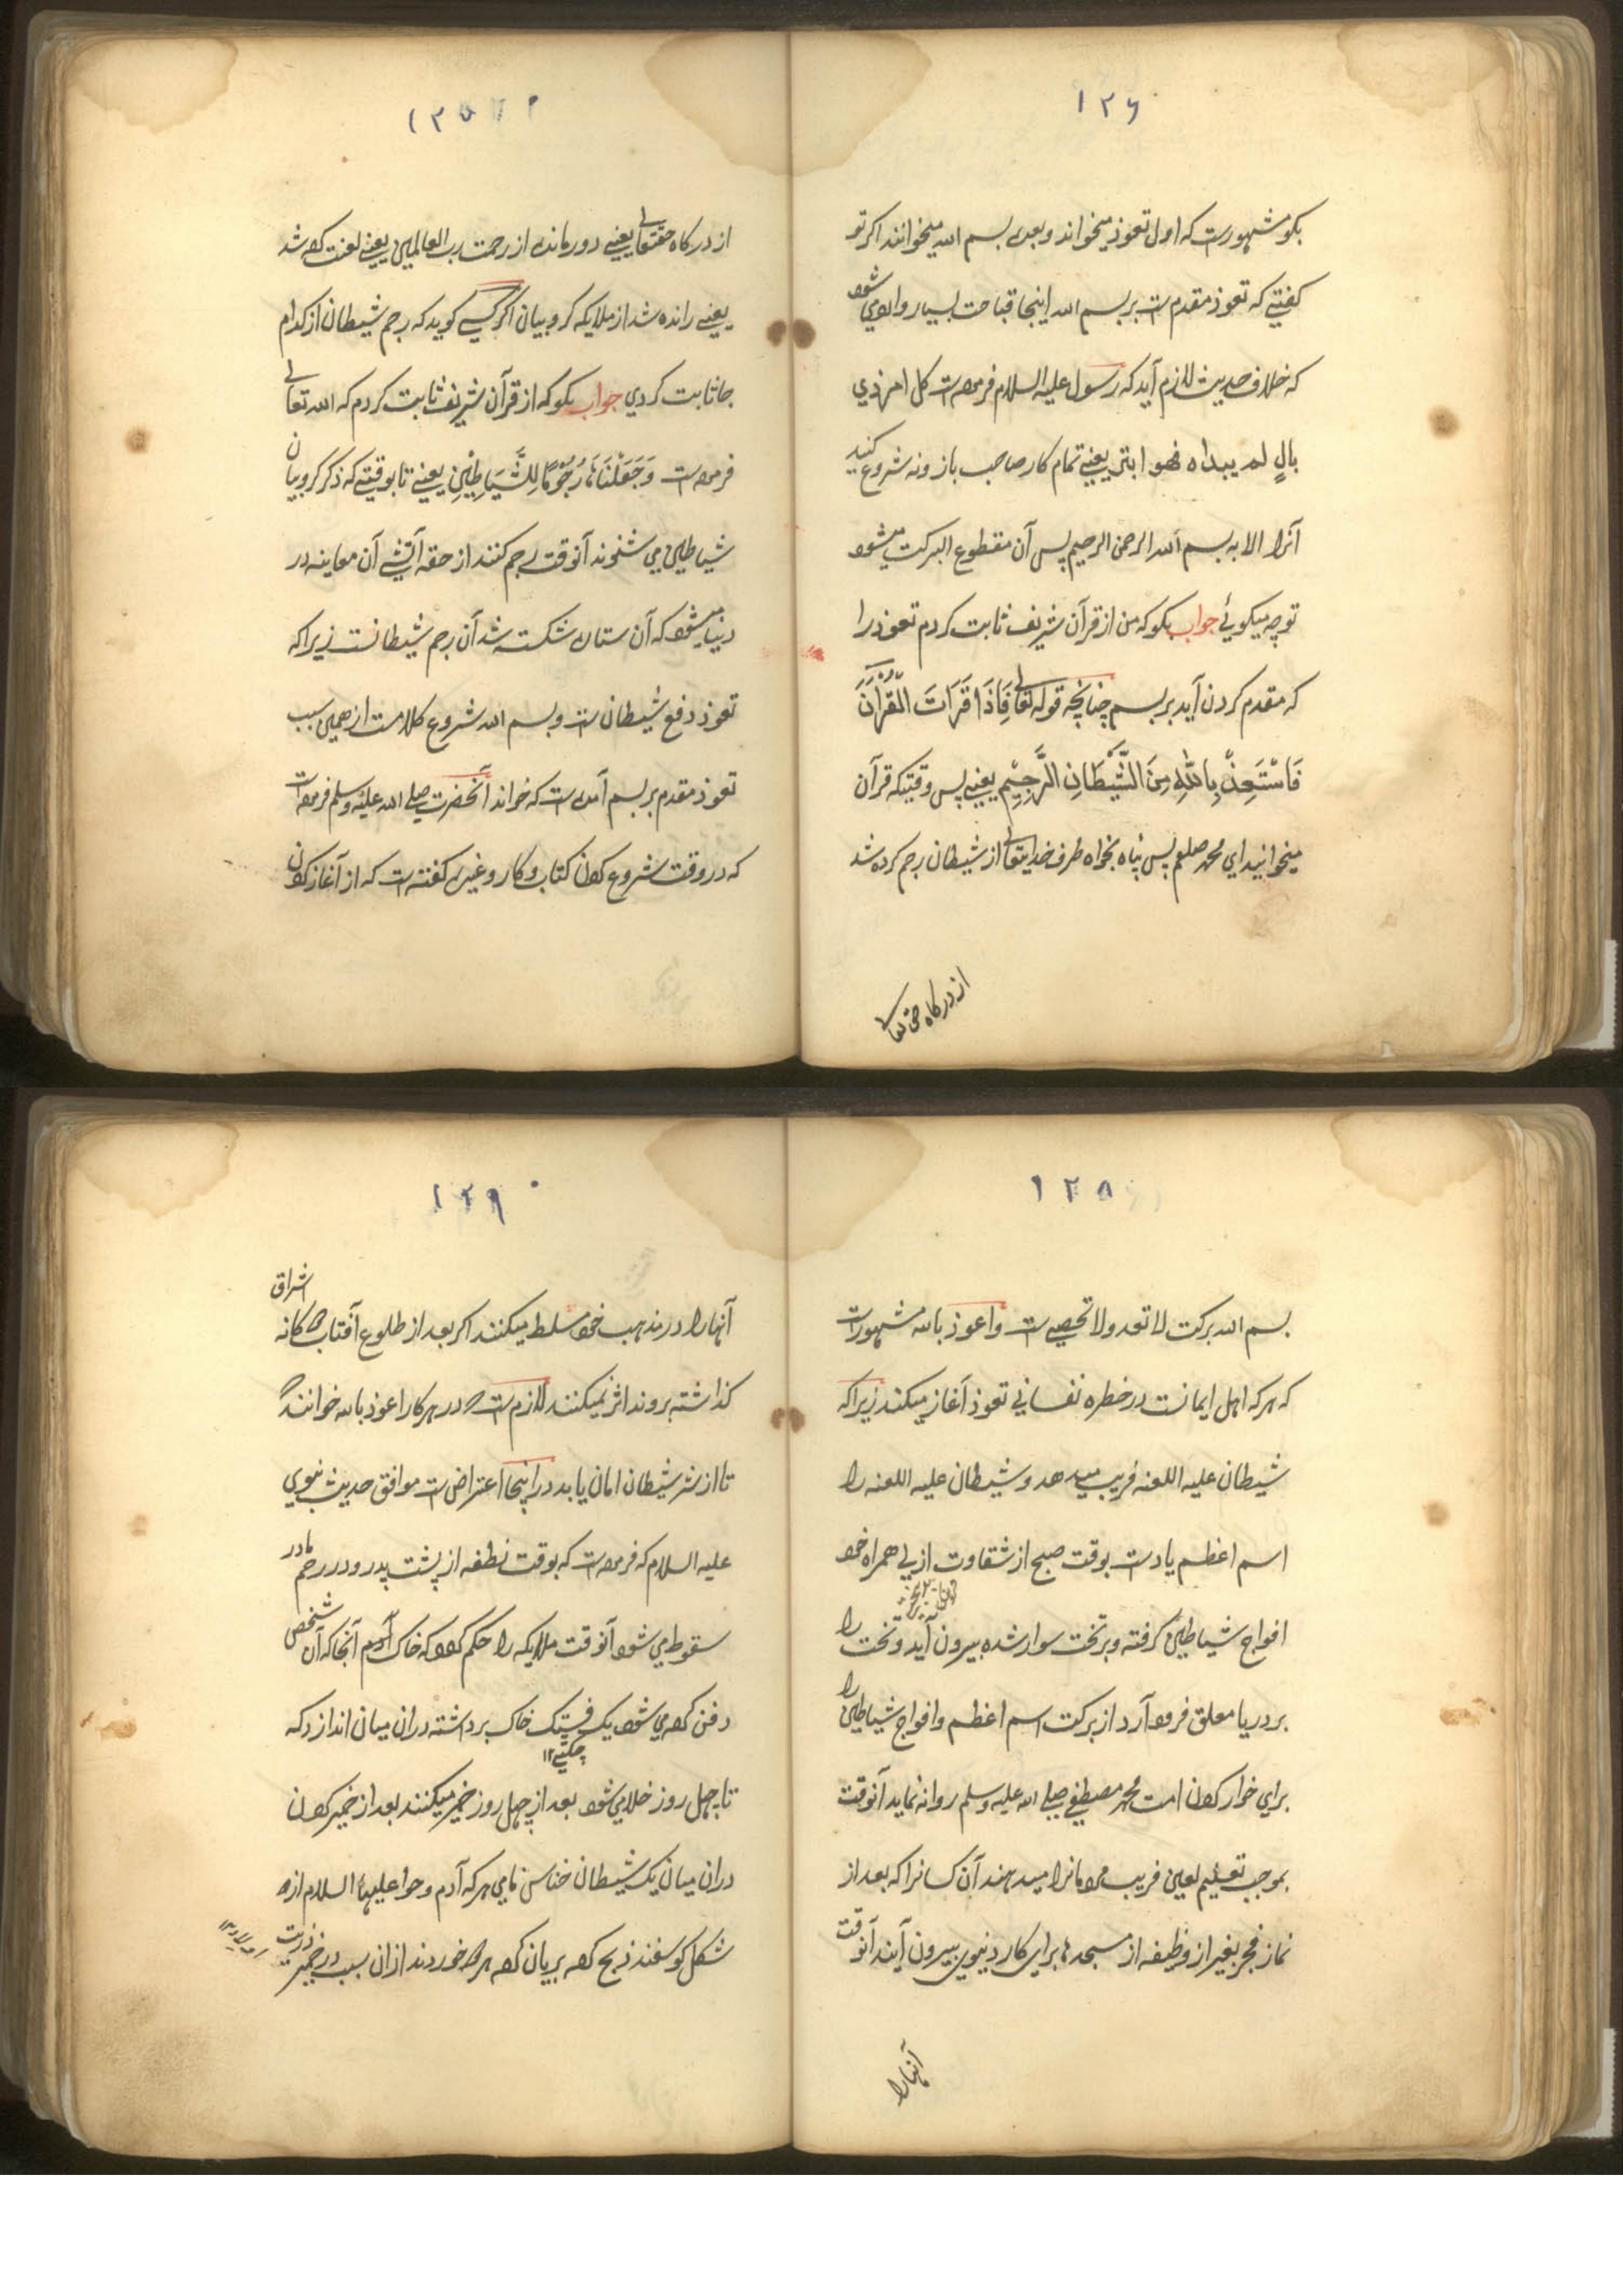 ۱۲۶
بکو مشهورست که اول تعوذ میخواند و بعده بسم الله میخوانند اکر تو
کفتی که تعوذ مقدم ست بر بسم الله اینجا قباحت بسیار وارد می شود
که خلاف حدیث لازم آید که رسول علیه السلام فرموده ست کل امر ذي
بالٍ لم یبداه فهو ابتر یعنے تمام کار صاحب باز ونه شروع کنید
آنرا الا به بسم الله الرحمن الرحیم پس آن مقطوع البرکت میشود
تو چه میکوئے جواب بکو که من از قرآن شریف ثابت کردم تعوذ را
که مقدم کردن آید بر بسم چنانچه قوله تعالی فَاِذَا قَرَاتَ الْقُرْآنَ
فَاسْتَعِذْ بِاللّٰهِ مِنَ الشَّیْطَانِ الرَّجِیْمِ یعنے پس وقتیکه قرآن
میخوانید اي محمد صلعم پس پناه بخواه طرف خدایتعالی از شیطان رجم کرده شد
از درکاه حق تعالی
۱۲۷
از درکاه حقتعالی یعنے دور مانده از رحمت رب العالمین یعنے لعنت کرده شد
یعنے رانده شد از ملایکه کروبیان اکر کسے کوید که رجم شیطان از کدام
جا ثابت کردي جواب بکو که از قرآن شریف ثابت کردم که الله تعالی
فرموده ست وَجَعَلْنَاهَا رُجُوْمًا لِلشَّیَاطِیْنِ یعنے تا بوقتیکه ذکر کروبیان
شیاطین مي شنوند آنوقت رجم کنند از حقه آتشے آن معاینه در
دنیا میشود که آن ستاره شکسته شد آن رجم شیطانست زیرا که
تعوذ دفع شیطان ست و بسم الله شروع کلامست از همین سبب
تعوذ مقدم بر بسم آمده ست که خواند آنحضرت صلی الله علیه وسلم فرموده ست
که در وقت شروع کردن کتاب و کار وغیره کفته ست که از آغاز کردن
۱۲۸
بسم الله برکت لا تعد ولا تحصی ست و اعوذ بالله مشهورست
که هر که اهل ایمانست در خطره نفساني تعوذ آغاز میکند زیرا که
شیطان علیه اللعنه فریب میدهد و شیطان علیه اللعنه را
اسم اعظم یادست بوقت صبح از شقاوت ازلي همراه خود
افواج شیاطین کرفته و بر تخت سوار شده بیرون آید و تخت را
بر دریا معلق فرود آرد از برکت اسم اعظم و افواج شیاطین را
براي خوار کردن امت محمد مصطفی صلی الله علیه وسلم روانه نماید آنوقت
بموجب تعلیم لعین فریب مردمانرا میدهند آن کسانرا که بعد از
نماز فجر بغیر از وظیفه از مسجدها براي کار دنیوي بیرون آیند آنوقت
آنهارا
۱۲۹
اشراق
آنهارا در مذهب خود مسلط میکنند اکر بعد از طلوع آفتاب دوکانه
کذاشته بروند اثر نمیکنند لازم ست که در هر کار اعوذ بالله خوانند
تا از شر شیطان امان یابد در اینجا اعتراض ست موافق حدیث نبوي
علیه السلام که فرموده ست که بوقت نطفه از پشت پدر و در رحم مادر
سقوط مي شود آنوقت ملایکه را حکم کرده که خاک آدم آنجا که آن شخص
دفن کرده مي شود یک فستک خاک برداشته دران میان اندازد که
چکتے ۱۲
تا چهل روز خلا میشود بعد از چهل روز خمیر میکنند بعد از خمیر کردن
دران میان یک شیطان خناس نامي هر که آدم و حوا علیهما السلام ازو
شکل کوسفند ذبح کرده بریان کرده هردو خوردند ازان سبب در خمیر ذریت
اولاد ۱۲